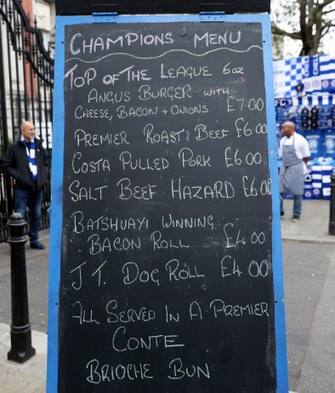 CHAMPIONS MENU
TOP OF THE LEAGUE 6oz
ANGUS BURGER WITH
CHEESE, BACON + ONIONS £7.00
PREMIER ROAST BEEF £6.00
COSTA PULLED PORK £6.00
SALT BEEF HAZARD £6.00
BATSHUAYI WINNING
BACON ROLL £4.00
J.T. DOG ROLL £4.00
ALL SERVED IN A PREMIER
CONTE
BRIOCHE BUN